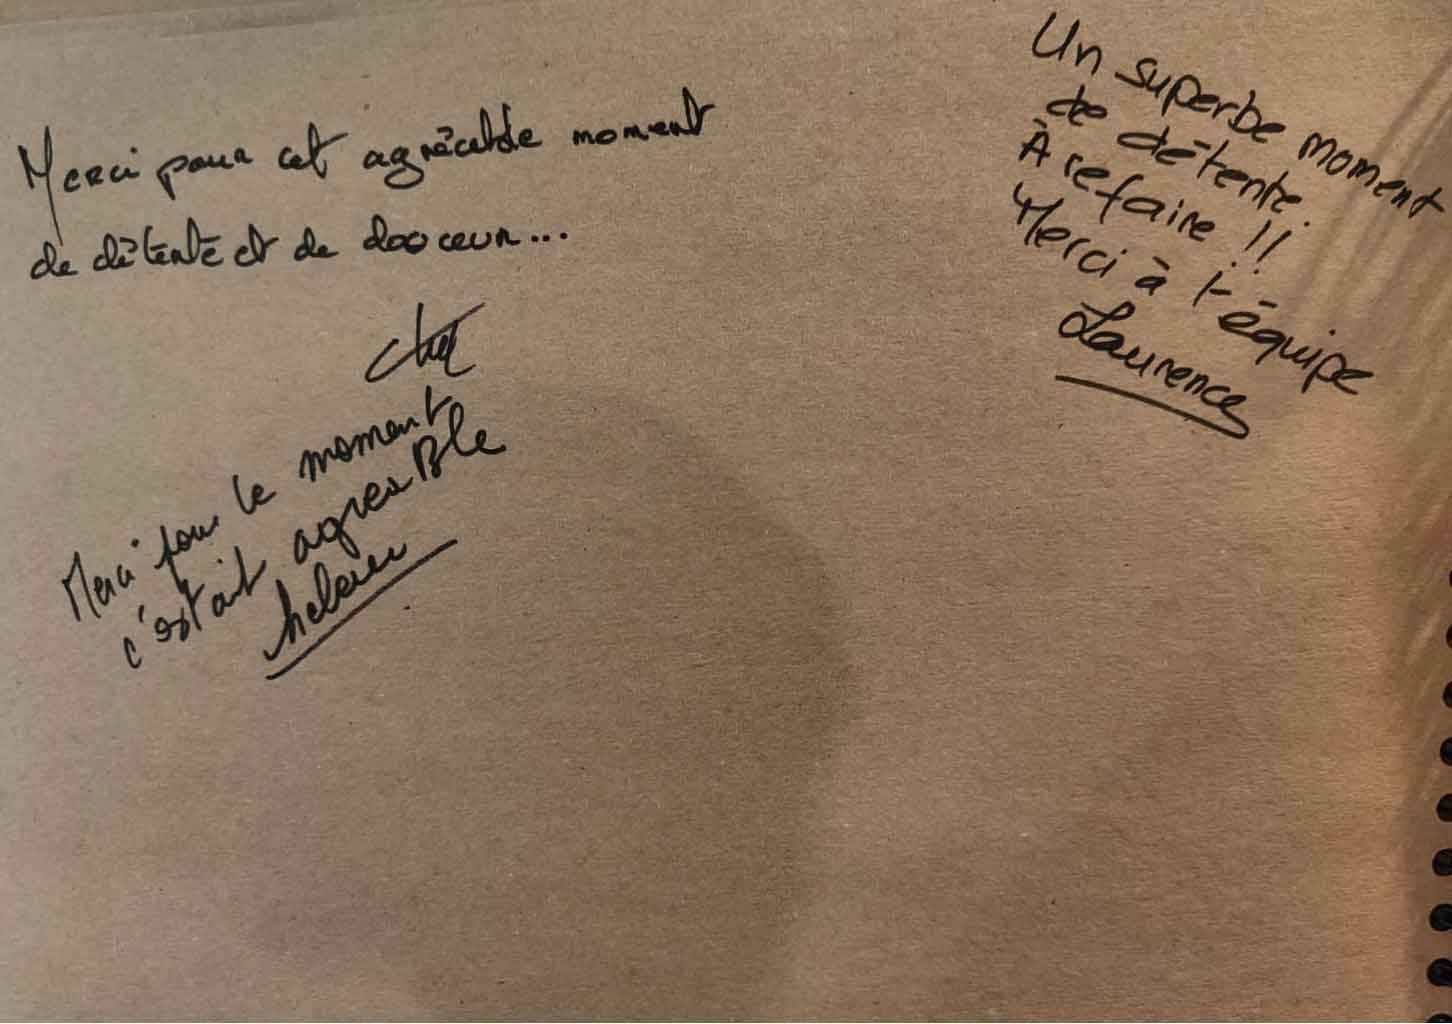 Merci pour cet agréable moment
de détente et de douceur...
Merci pour le moment
c'était agreaBle
Un superbe moment
de détente.
À refaire !!
Merci à l'équipe
Laurence